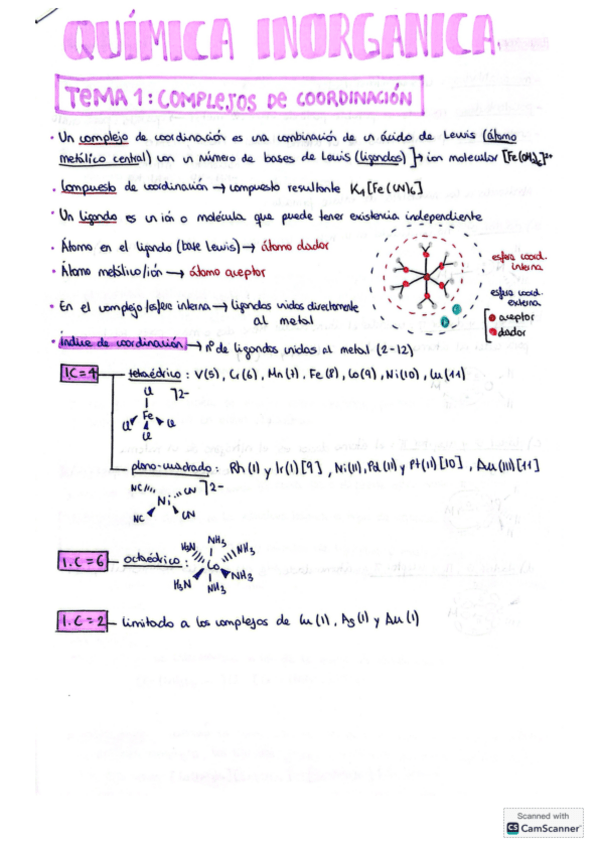 QUÍMICA INORGANICA.
TEMA 1: COMPLEJOS DE COORDINACIÓN
· Un complejo de coordinación es una combinación de un ácido de Lewis (átomo
metálico central) con un número de bases de Lewis (ligandos) ]→ ion molecular [Fe(OH2)6]2+
· Compuesto de coordinación → compuesto resultante K4[Fe(CN)6]
· Un ligando es un ión o molécula que puede tener existencia independiente
· Átomo en el ligando (base Lewis) → átomo dador
· Átomo metálico/ión → átomo aceptor
esfera coord.
interna
esfera coord.
externa
aceptor
dador
· En el complejo/esfera interna → ligandos unidos directamente
al metal
· Índice de coordinación → nº de ligandos unidas al metal (2-12)
IC=4 tetraédrico: V(5), Cr(6), Mn(7), Fe(8), Co(9), Ni(10), Cu(11)
Cl ]2-
Fe
Cl Cl
Cl
plano-cuadrado: Rh(I) y Ir(I) [9], Ni(II), Pd(II) y Pt(II) [10], Au(III) [11]
NC CN ]2-
Ni
NC CN
I.C=6 octaédrico:
NH3
H3N NH3
Co
H3N NH3
NH3
I.C=2 limitado a los complejos de Cu(I), Ag(I) y Au(I)
Scanned with
CS CamScanner